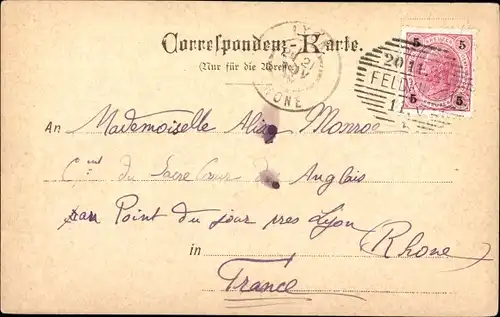 Correspondenz-Karte.
(Nur für die Adresse)
LYON
RHONE
5 5
5 5
20 11
FELD
An Mademoiselle Alice Monroe
Cent du Sacré Coeur des Anglais
au Point du jour pres Lyon
(Rhone)
in France